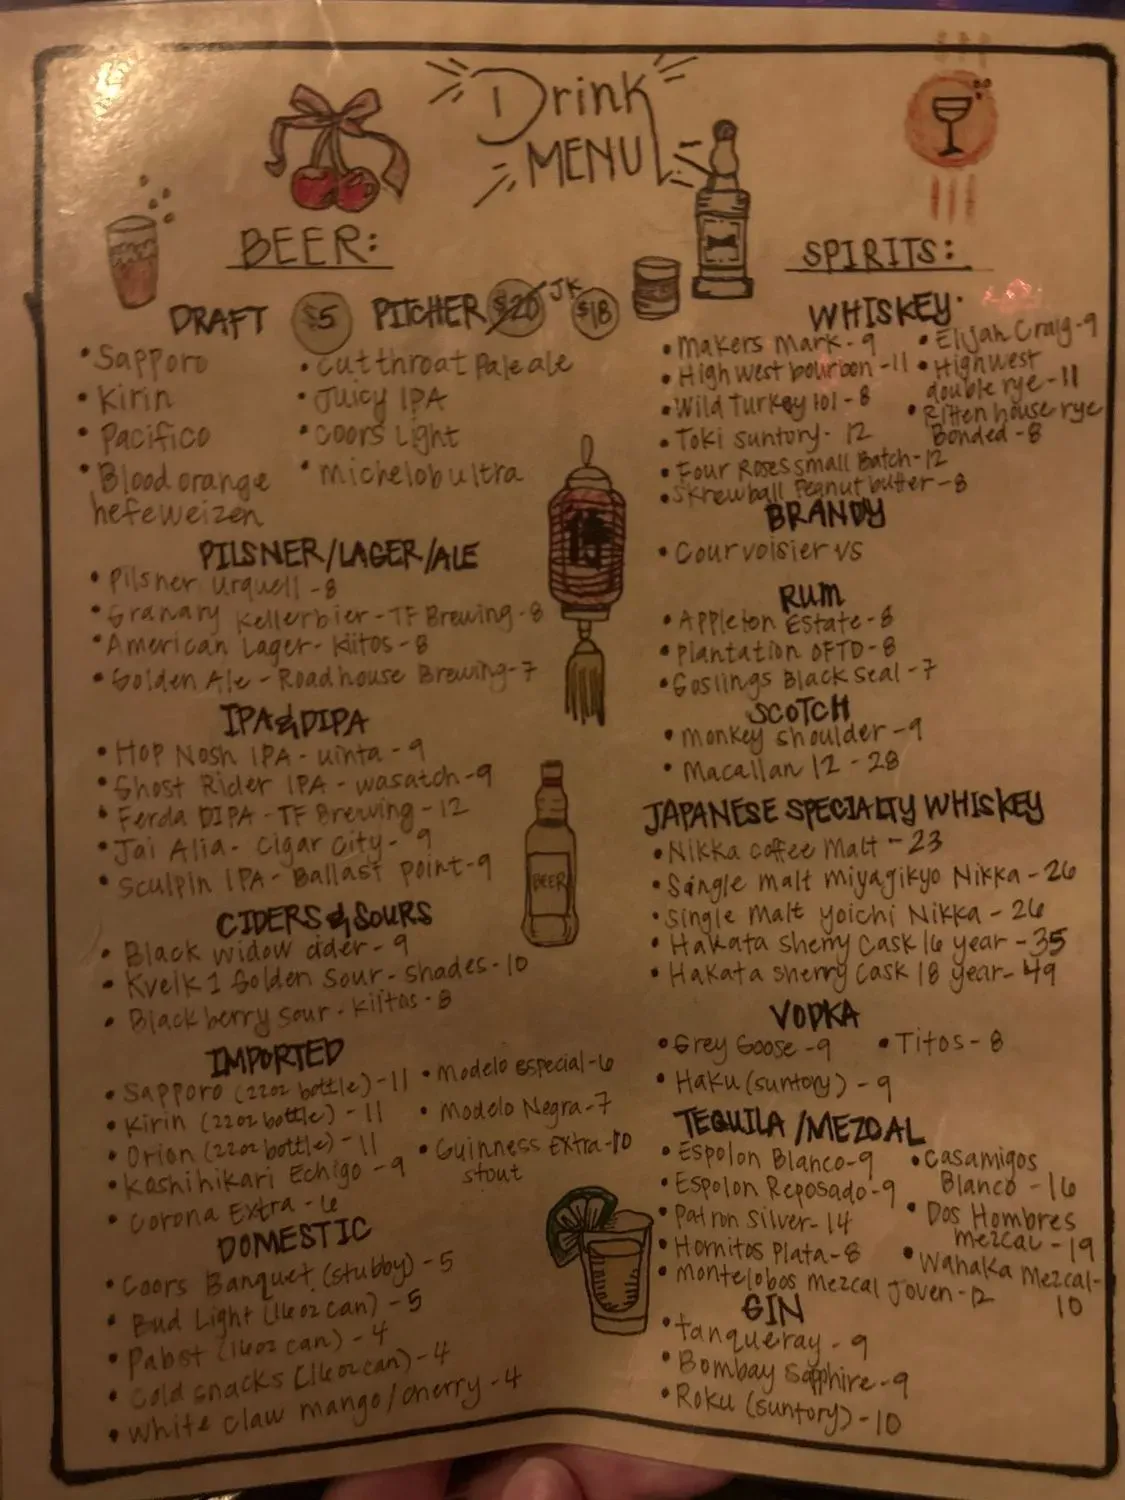 Drink
MENU
BEER:
DRAFT $5 PITCHER $20 JK $18
• Sapporo
• Kirin
• Pacifico
• Blood orange
hefeweizen
• Cutthroat Pale ale
• Juicy IPA
• Coors Light
• Michelob ultra
PILSNER/LAGER/ALE
• Pilsner Urquell - 8
• Granary Kellerbier - TF Brewing - 8
• American Lager - Kiitos - 8
• Golden Ale - Roadhouse Brewing - 7
IPA & DIPA
• Hop Nosh IPA - uinta - 9
• Ghost Rider IPA - wasatch - 9
• Ferda DIPA - TF Brewing - 12
• Jai Alia - Cigar City - 9
• Sculpin IPA - Ballast Point - 9
CIDERS & SOURS
• Black widow cider - 9
• Kveik 1 Golden Sour - Shades - 10
• Blackberry sour - Kiitos - 8
IMPORTED
• Sapporo (22oz bottle) - 11
• Kirin (22oz bottle) - 11
• Orion (22oz bottle) - 11
• Koshihikari Echigo - 9
• Corona Extra - 6
• Modelo Especial - 6
• Modelo Negra - 7
• Guinness Extra - 10
stout
DOMESTIC
• Coors Banquet (stubby) - 5
• Bud Light (16oz can) - 5
• Pabst (16oz can) - 4
• Cold snacks (16oz can) - 4
• White claw mango/cherry - 4
BEER
SPIRITS:
WHISKEY
• Makers Mark - 9
• High west bourbon - 11
• Wild Turkey 101 - 8
• Toki Suntory - 12
• Four Roses small Batch - 12
• Skrewball Peanut butter - 8
• Elijah Craig - 9
• High west
double rye - 11
• Rittenhouse rye
Bonded - 8
BRANDY
• Courvoisier VS
RUM
• Appleton Estate - 8
• Plantation OFTD - 8
• Goslings Black Seal - 7
SCOTCH
• Monkey shoulder - 9
• Macallan 12 - 28
JAPANESE SPECIALTY WHISKEY
• Nikka coffee Malt - 23
• Single malt Miyagikyo Nikka - 26
• Single Malt Yoichi Nikka - 26
• Hakata Sherry Cask 16 year - 35
• Hakata Sherry Cask 18 year - 49
VODKA
• Grey Goose - 9
• Titos - 8
• Haku (suntory) - 9
TEQUILA/MEZCAL
• Espolon Blanco - 9
• Espolon Reposado - 9
• Patron Silver - 14
• Hornitos Plata - 8
• Montelobos Mezcal Joven - 12
• Casamigos
Blanco - 16
• Dos Hombres
Mezcal - 19
• Wahaka Mezcal -
10
GIN
• Tanqueray - 9
• Bombay Sapphire - 9
• Roku (suntory) - 10